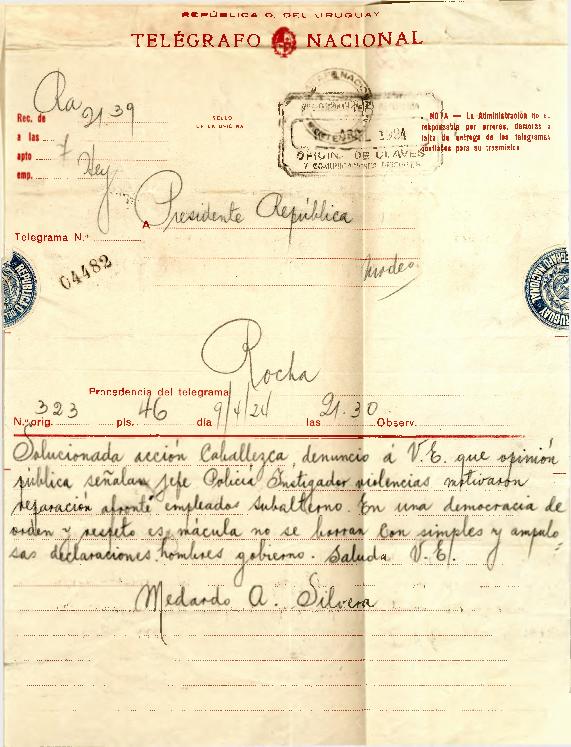 REPÚBLICA O. DEL URUGUAY
TELÉGRAFO NACIONAL
Rec. de
21 39
a las
apto 7
emp.
SELLO
DE LA OFICINA
OFICINA DE CLAVES
Y COMUNICACIONES OFICIALES
NOTA — La Administración no es
responsable por errores, demoras o
falta de entrega de los telegramas
confiados para su trasmisión
A Presidente República
Telegrama N.º
04482
Mvdeo
Rocha
Procedencia del telegrama
N.º orig. 323 pls. 46 día 9/4/24 las 21.30 Observ.
Solucionada acción Caballezca denuncio á V.E. que opinión
pública señalan jefe Policía Instigador violencias motivaron
reparación afronte empleados subalterno. En una democracia de
orden y respeto es mácula no se borran con simples y ampulo=
sas declaraciones hombres gobierno. Saluda V.E.
Medardo A. Silvera